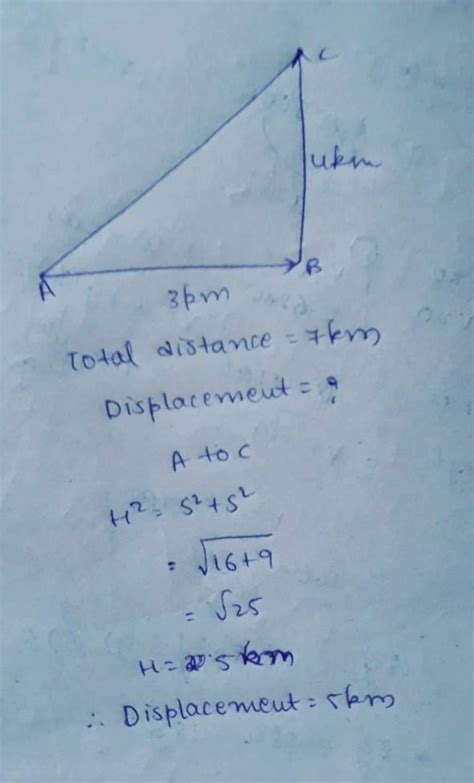 C
4km
B
A
3km
Total distance = 7km
Displacement = ?
A to C
H² = S² + S²
= √16+9
= √25
H = 5 km
∴ Displacement = 5km